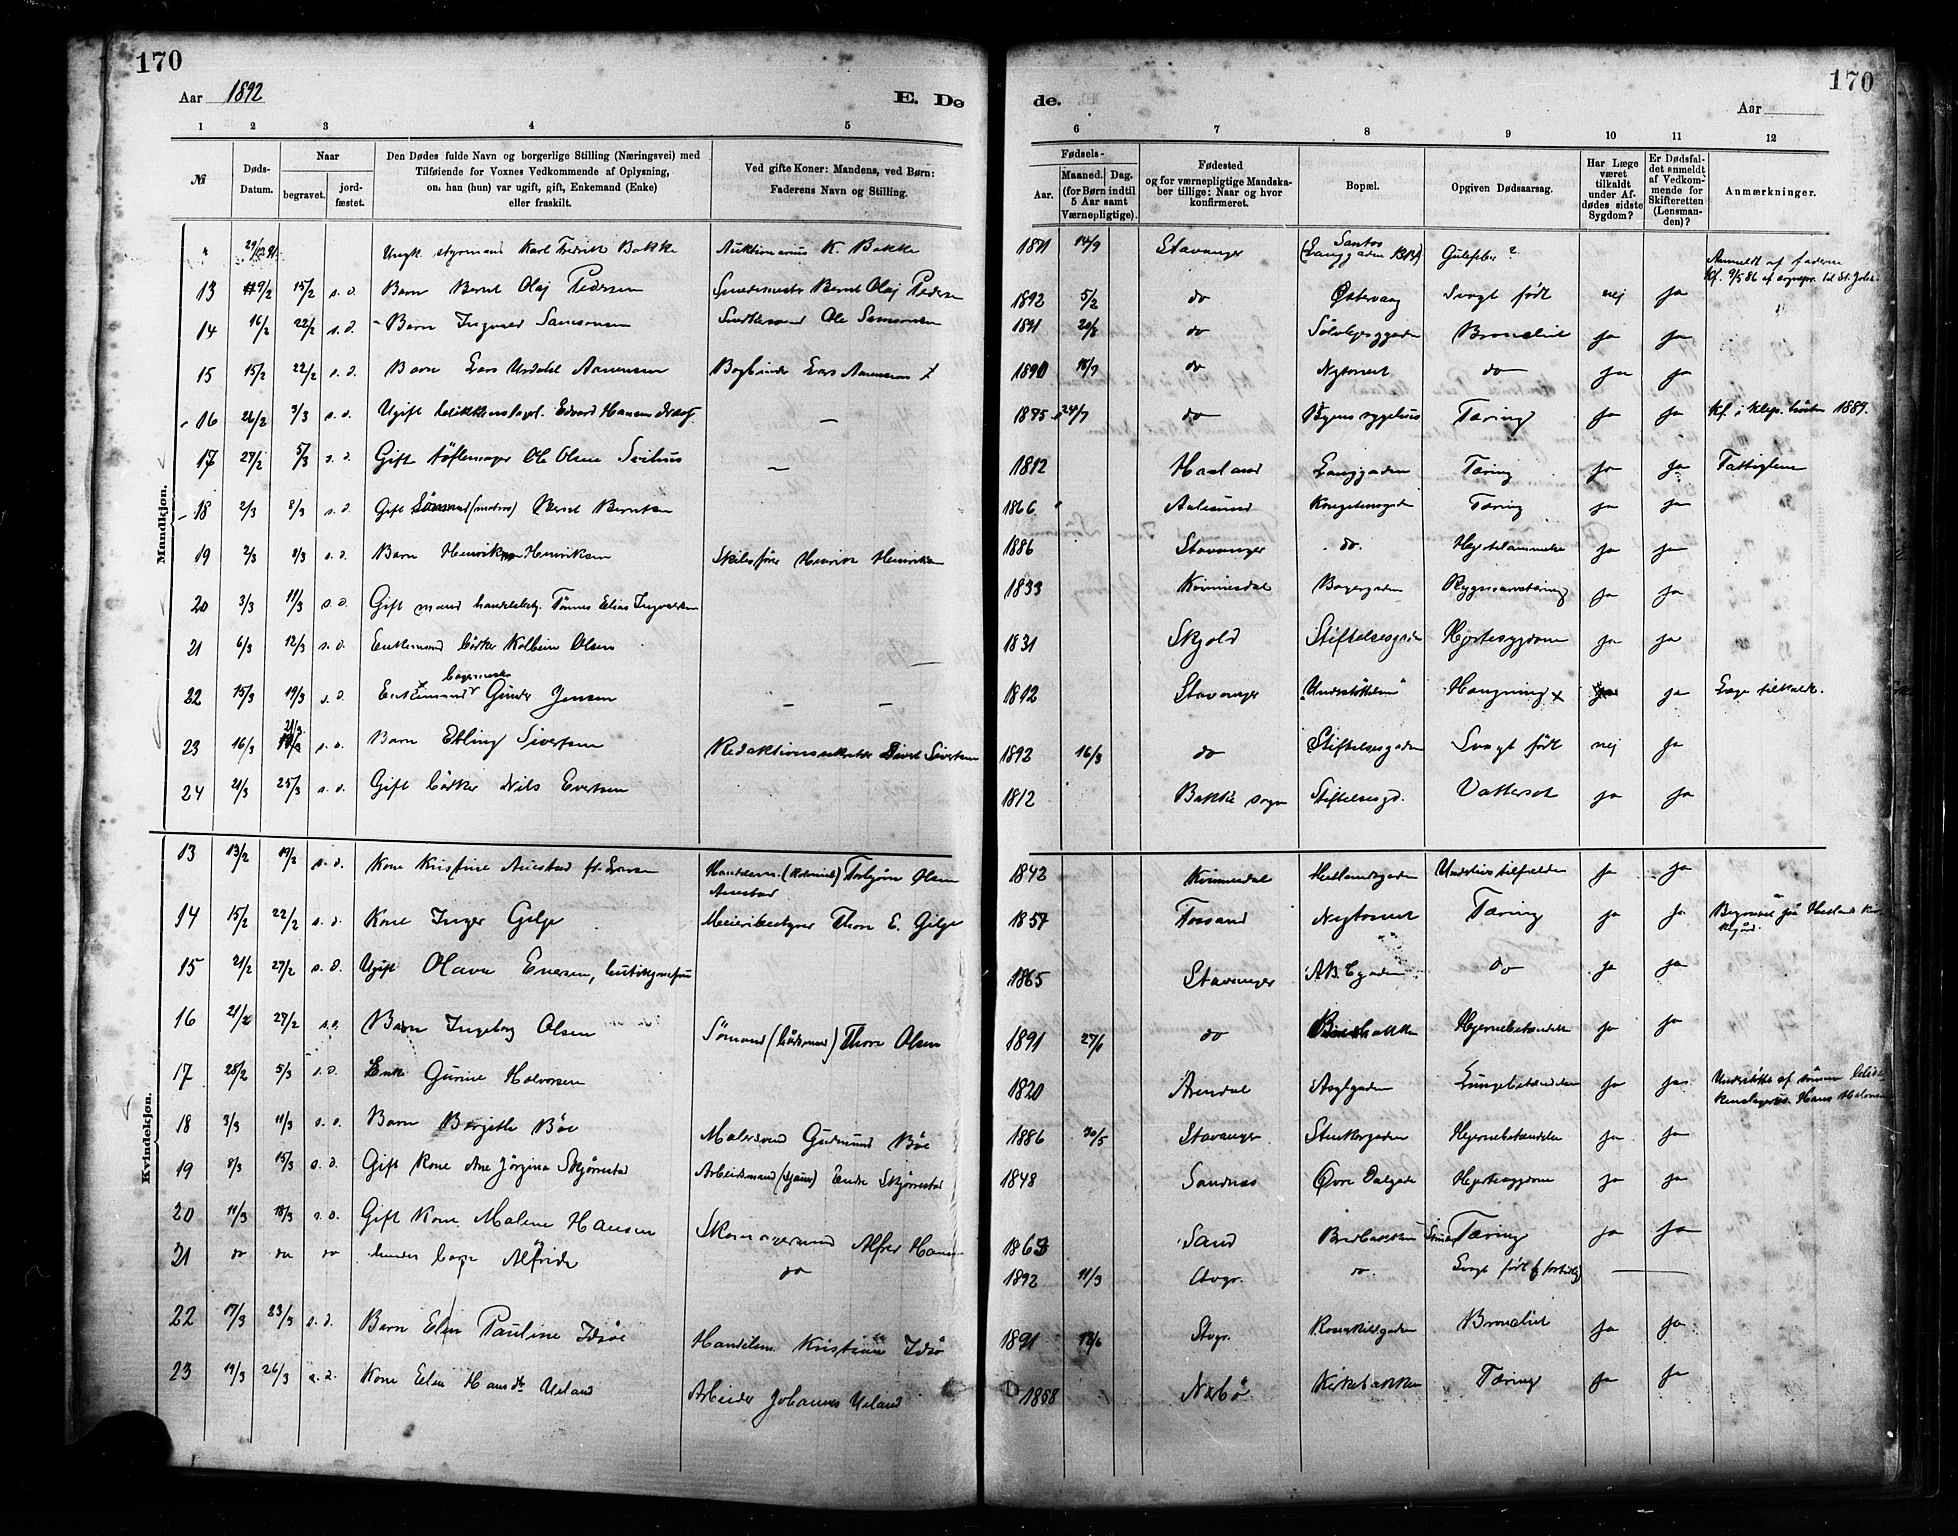 170
Aar 1892
E. De
de.
Aar
170
1 2 3 4 5 6 7 8 9 10 11 12
№
Døds-
Datum.
Naar
begravet.
jord-
fæstet.
Den Dødes fulde Navn og borgerlige Stilling (Næringsvei) med
Tilføiende for Voxnes Vedkommende af Oplysning,
om han (hun) var ugift, gift, Enkemand (Enke)
eller fraskilt.
Ved gifte Koner: Mandens, ved Børn:
Faderens Navn og Stilling.
Fødsels-
Aar.
Maaned. Dag.
(for Børn indtil
5 Aar samt
Værnepligtige).
Fødested
og for værnepligtige Mandska-
ber tillige: Naar og hvor
konfirmeret.
Bopæl.
Opgiven Dødsaarsag.
Har Læge
været
tilkaldt
under Af-
dødes sidste
Sygdom?
Er Dødsfal-
det anmeldt
af Vedkom-
mende for
Skifteretten
(Lensman-
den)?
Anmærkninger.
Mandkjøn.
" 29/12 91. Ungk. styrmand Karl Fredrik Bakke Auktionarius K. Bakke 1871 14/9 Stavanger Santos (Langgaden) Gulfeber ? Anmeldt af faderen
13 9/2 15/2 s.d. Barn Bernt Olaj Pedersen Smedemester Bernt Olaj Pedersen 1892 5/2 do Østervaag Svagt født nej ja
14 16/2 22/2 s.d. Barn Ingvald Samsonsen Ole Samsonsen 1891 20/8 do Bronchit ja ja
15 15/2 22/2 s.d. Barn Lars Urdahl Aanensen Bogbinder Lars Aanensen 1890 18/7 do Nytorvet do ja ja
16 26/2 3/3 s.d. Ugift Edvard Hansen — 1875 24/7 do Byens sygehus Tæring ja ja Kf. i Klep høsten 1889.
17 27/2 5/3 s.d. Gift tøflemager Ole Olsen Svihus — 1812 Haaland Langgaden Tæring ja ja Fattiglem
18 2/3 8/3 s.d. Gift Sømand (matros) Bernt Berntsen 1866 Aalesund Kongstensgaden Tæring ja ja
19 2/3 8/3 s.d. Barn Henrik Henriksen Skibsfører Henrik Henriksen 1886 Stavanger do. ja ja
20 3/3 11/3 s.d. Gift mand handelsbetj. Tønnes Elias Ingvaldsen 1833 Kvinnesdal Bagergaden Rygmarvstæring ja ja
21 6/3 12/3 s.d. Enkemand bødker Kolbein Olsen — 1831 Skjold Stiftelsesgaden Hjertesygdom ja ja
22 15/3 19/3 s.d. Enkemand bagermester Gunder Jensen — — 1812 Stavanger "Understøttelsen" Hængning x ja Læge tilkaldt.
23 16/3 21/3 s.d. Barn Erling Sivertsen Redaktionssekretær Sivert Sivertsen 1892 16/3 do Stiftelsesgaden Svagt født nej ja
24 21/3 25/3 s.d. Gift bødker Nils Evertsen 1812 Bakke sogn Stiftelsesgd. Vattersot ja ja
Kvindekjøn.
13 13/2 19/2 s.d. Kone Kristine Auestad f. Larsen Handelsm. (Kolonial) Torbjørn Olsen Auestad 1842 Kvinnesdal Hetlandsgaden Underlivstilfælde ja ja
14 15/2 22/2 s.d. Kone Inger Gilje Meieribestyrer Thore E. Gilje 1857 Fossand Nytorvet Tæring ja ja Begravet paa Hetlands Kirkegård.
15 21/2 27/2 s.d. Ugift Olava Enersen, butikjomfru 1865 Stavanger do ja ja
16 21/2 27/2 s.d. Barn Ingeborg Olsen Sømand (bådsmand) Thore Olsen 1891 27/1 do Hjernebetændelse ja ja
17 28/2 5/3 s.d. Enke Gurine Halvorsen 1820 Arendal Asylgaden Lungebetændelse ja ja Understøttet af sønnen Hans Halvorsen
18 3/3 11/3 s.d. Barn Bergithe Bøe Malersvend Gudmund Bøe 1886 30/5 Stavanger Stenkargaden Hjernebetændelse ja ja
19 8/3 15/3 s.d. Gift Kone Ane Jørgina Skjørestad Arbeidsmand (sjauer) Endre Skjørestad 1848 Sandnes Øvre Dalgade Hjertesygdom ja ja
20 11/3 18/3 s.d. Gift Kone Malene Hansen Skomagersvend Alfred Hansen 1863 Sand Bredbakken Tæring ja ja
21 do do do hendes barn Alfride do 1892 11/3 Stvgr. do. Svagt født (for tidlig) —
22 17/3 23/3 s.d. Barn Elen Pauline Idsøe Handelsm. Kristian Idsøe 1891 18/6 Stvgr. Rosenkildgaden Bronchit ja ja
23 19/3 26/3 s.d. Kone Elen Hansdtr Ueland Arbeider Johannes Ueland 1858 Nærbø Kirkebakken Tæring ja ja